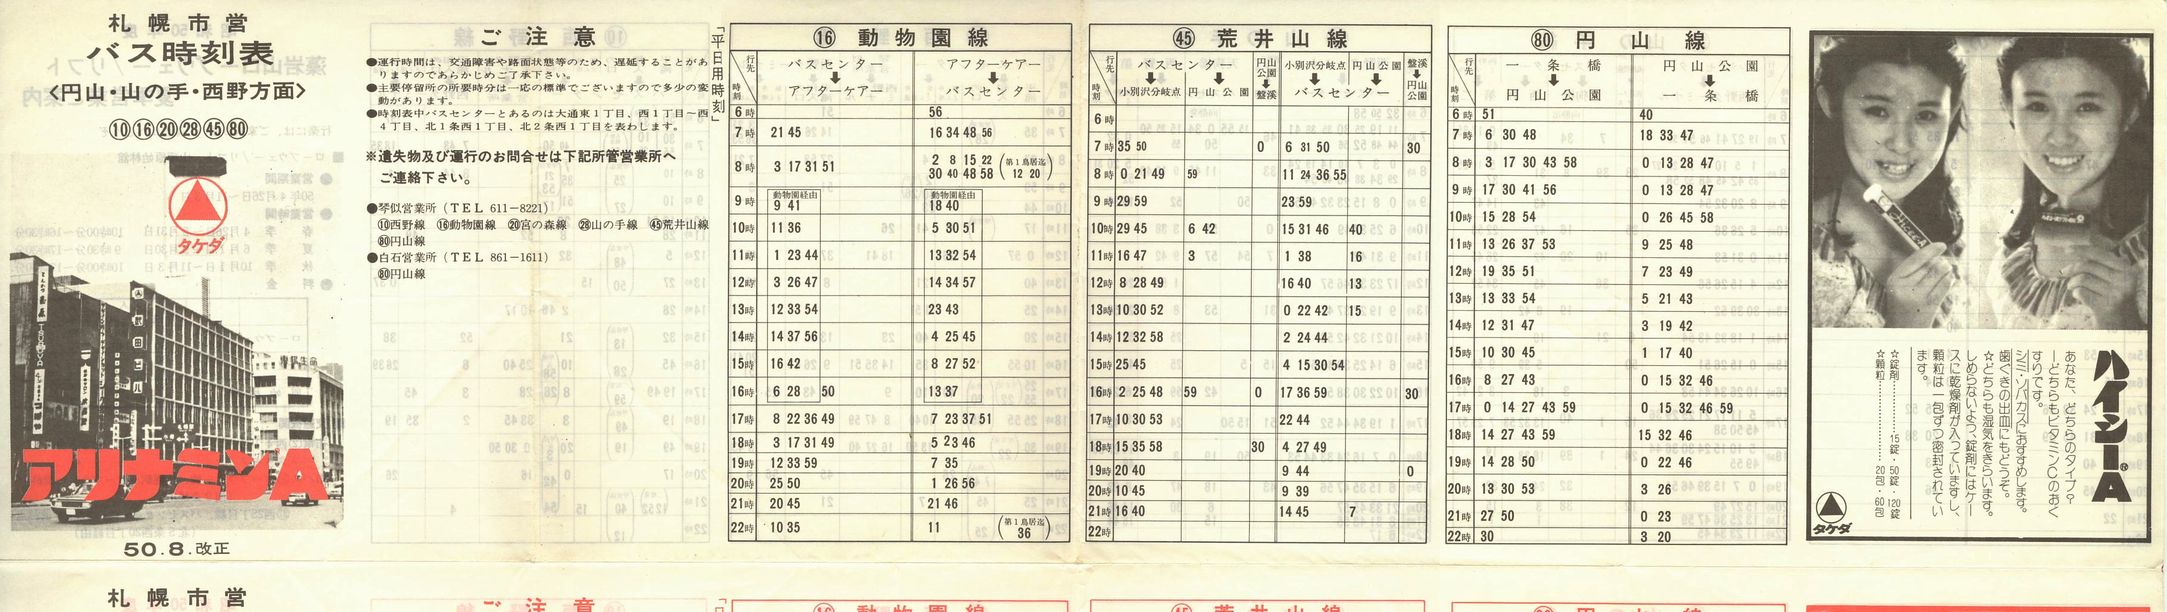 札幌市営
バス時刻表
<円山・山の手・西野方面>
⑩⑯⑳㉘㊺80
タケダ
アリナミンA
50.8.改正
ご注意
●運行時間は、交通障害や路面状態等のため、遅延することがありますのであらかじめご了承下さい。
●主要停留所の所要時分は一応の標準でございますので多少の変動があります。
●時刻表中バスセンターとあるのは大通東1丁目、西1丁目~西4丁目、北1条西1丁目、北2条西1丁目を表わします。
※遺失物及び運行のお問合せは下記所管営業所へ
ご連絡下さい。
●琴似営業所(TEL 611-8221)
⑩西野線 ⑯動物園線 ⑳宮の森線 ㉘山の手線 ㊺荒井山線
80円山線
●白石営業所(TEL 861-1611)
80円山線
「平日用時刻」
⑯ 動物園線
行先 時刻 バスセンター ↓ アフターケアー アフターケアー ↓ バスセンター
6時 56
7時 21 45 16 34 48 56
8時 3 17 31 51 2 8 15 22 30 40 48 58 (第1鳥居迄 12 20)
9時 動物園経由 9 41 動物園経由 18 40
10時 11 36 5 30 51
11時 1 23 44 13 32 54
12時 3 26 47 14 34 57
13時 12 33 54 23 43
14時 14 37 56 4 25 45
15時 16 42 8 27 52
16時 6 28 50 13 37
17時 8 22 36 49 7 23 37 51
18時 3 17 31 49 5 23 46
19時 12 33 59 7 35
20時 25 50 1 26 56
21時 20 45 21 46
22時 10 35 11 (第1鳥居迄 36)
㊺ 荒井山線
行先 時刻 バスセンター ↓ 小別沢分岐点 円山公園 円山公園 ↓ 盤渓 小別沢分岐点 円山公園 ↓ バスセンター 盤渓 ↓ 円山公園
6時
7時 35 50 0 6 31 50 30
8時 0 21 49 59 11 24 36 55
9時 29 59 23 59
10時 29 45 6 42 15 31 46 40
11時 16 47 3 1 38 16
12時 8 28 49 16 40 13
13時 10 30 52 0 22 42 15
14時 12 32 58 2 24 44
15時 25 45 4 15 30 54
16時 2 25 48 59 0 17 36 59 30
17時 10 30 53 22 44
18時 15 35 58 30 4 27 49
19時 20 40 9 44 0
20時 10 45 9 39
21時 16 40 14 45 7
22時
80 円山線
行先 時刻 一条橋 ↓ 円山公園 円山公園 ↓ 一条橋
6時 51 40
7時 6 30 48 18 33 47
8時 3 17 30 43 58 0 13 28 47
9時 17 30 41 56 0 13 28 47
10時 15 28 54 0 26 45 58
11時 13 26 37 53 9 25 48
12時 19 35 51 7 23 49
13時 13 33 54 5 21 43
14時 12 31 47 3 19 42
15時 10 30 45 1 17 40
16時 8 27 43 0 15 32 46
17時 0 14 27 43 59 0 15 32 46 59
18時 14 27 43 59 15 32 46
19時 14 28 50 0 22 46
20時 13 30 53 3 26
21時 27 50 0 23
22時 30 3 20
ハイシーA
あなた、どちらのタイプ?
―どちらもビタミンCのおく
すりです。
シミ・ソバカスにおすすめします。
歯ぐきの出血にもどうぞ。
☆どちらも湿気をきらいます。
しめらないよう、錠剤にはケー
スに乾燥剤が入っていますし、
顆粒は一包ずつ密封されてい
ます。
☆錠剤………15錠・50錠・120錠
☆顆粒………20包・60包
タケダ
札幌市営
ご注意
⑯ 動物園線
㊺ 荒井山線
80 円山線